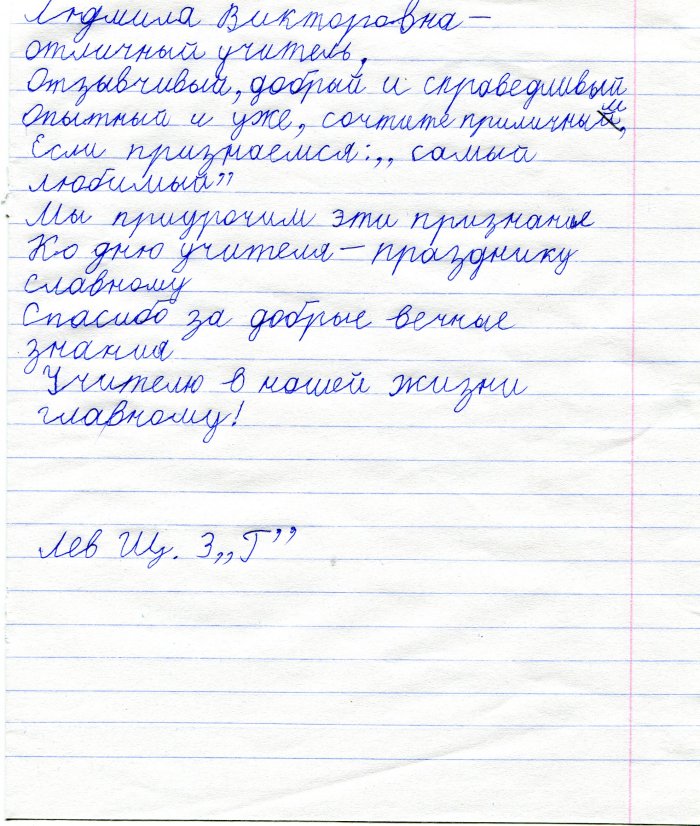 Людмила Викторовна –
отличный учитель,
Отзывчивый, добрый и справедливый
Опытный и уже, сочтите приличным,
Если признаемся: „ самый
любимый”
Мы приурочим эти признанья
Ко дню учителя – празднику
славному
Спасибо за добрые вечные
знания
Учителю в нашей жизни
главному!
Лев Щ. 3 „Г”